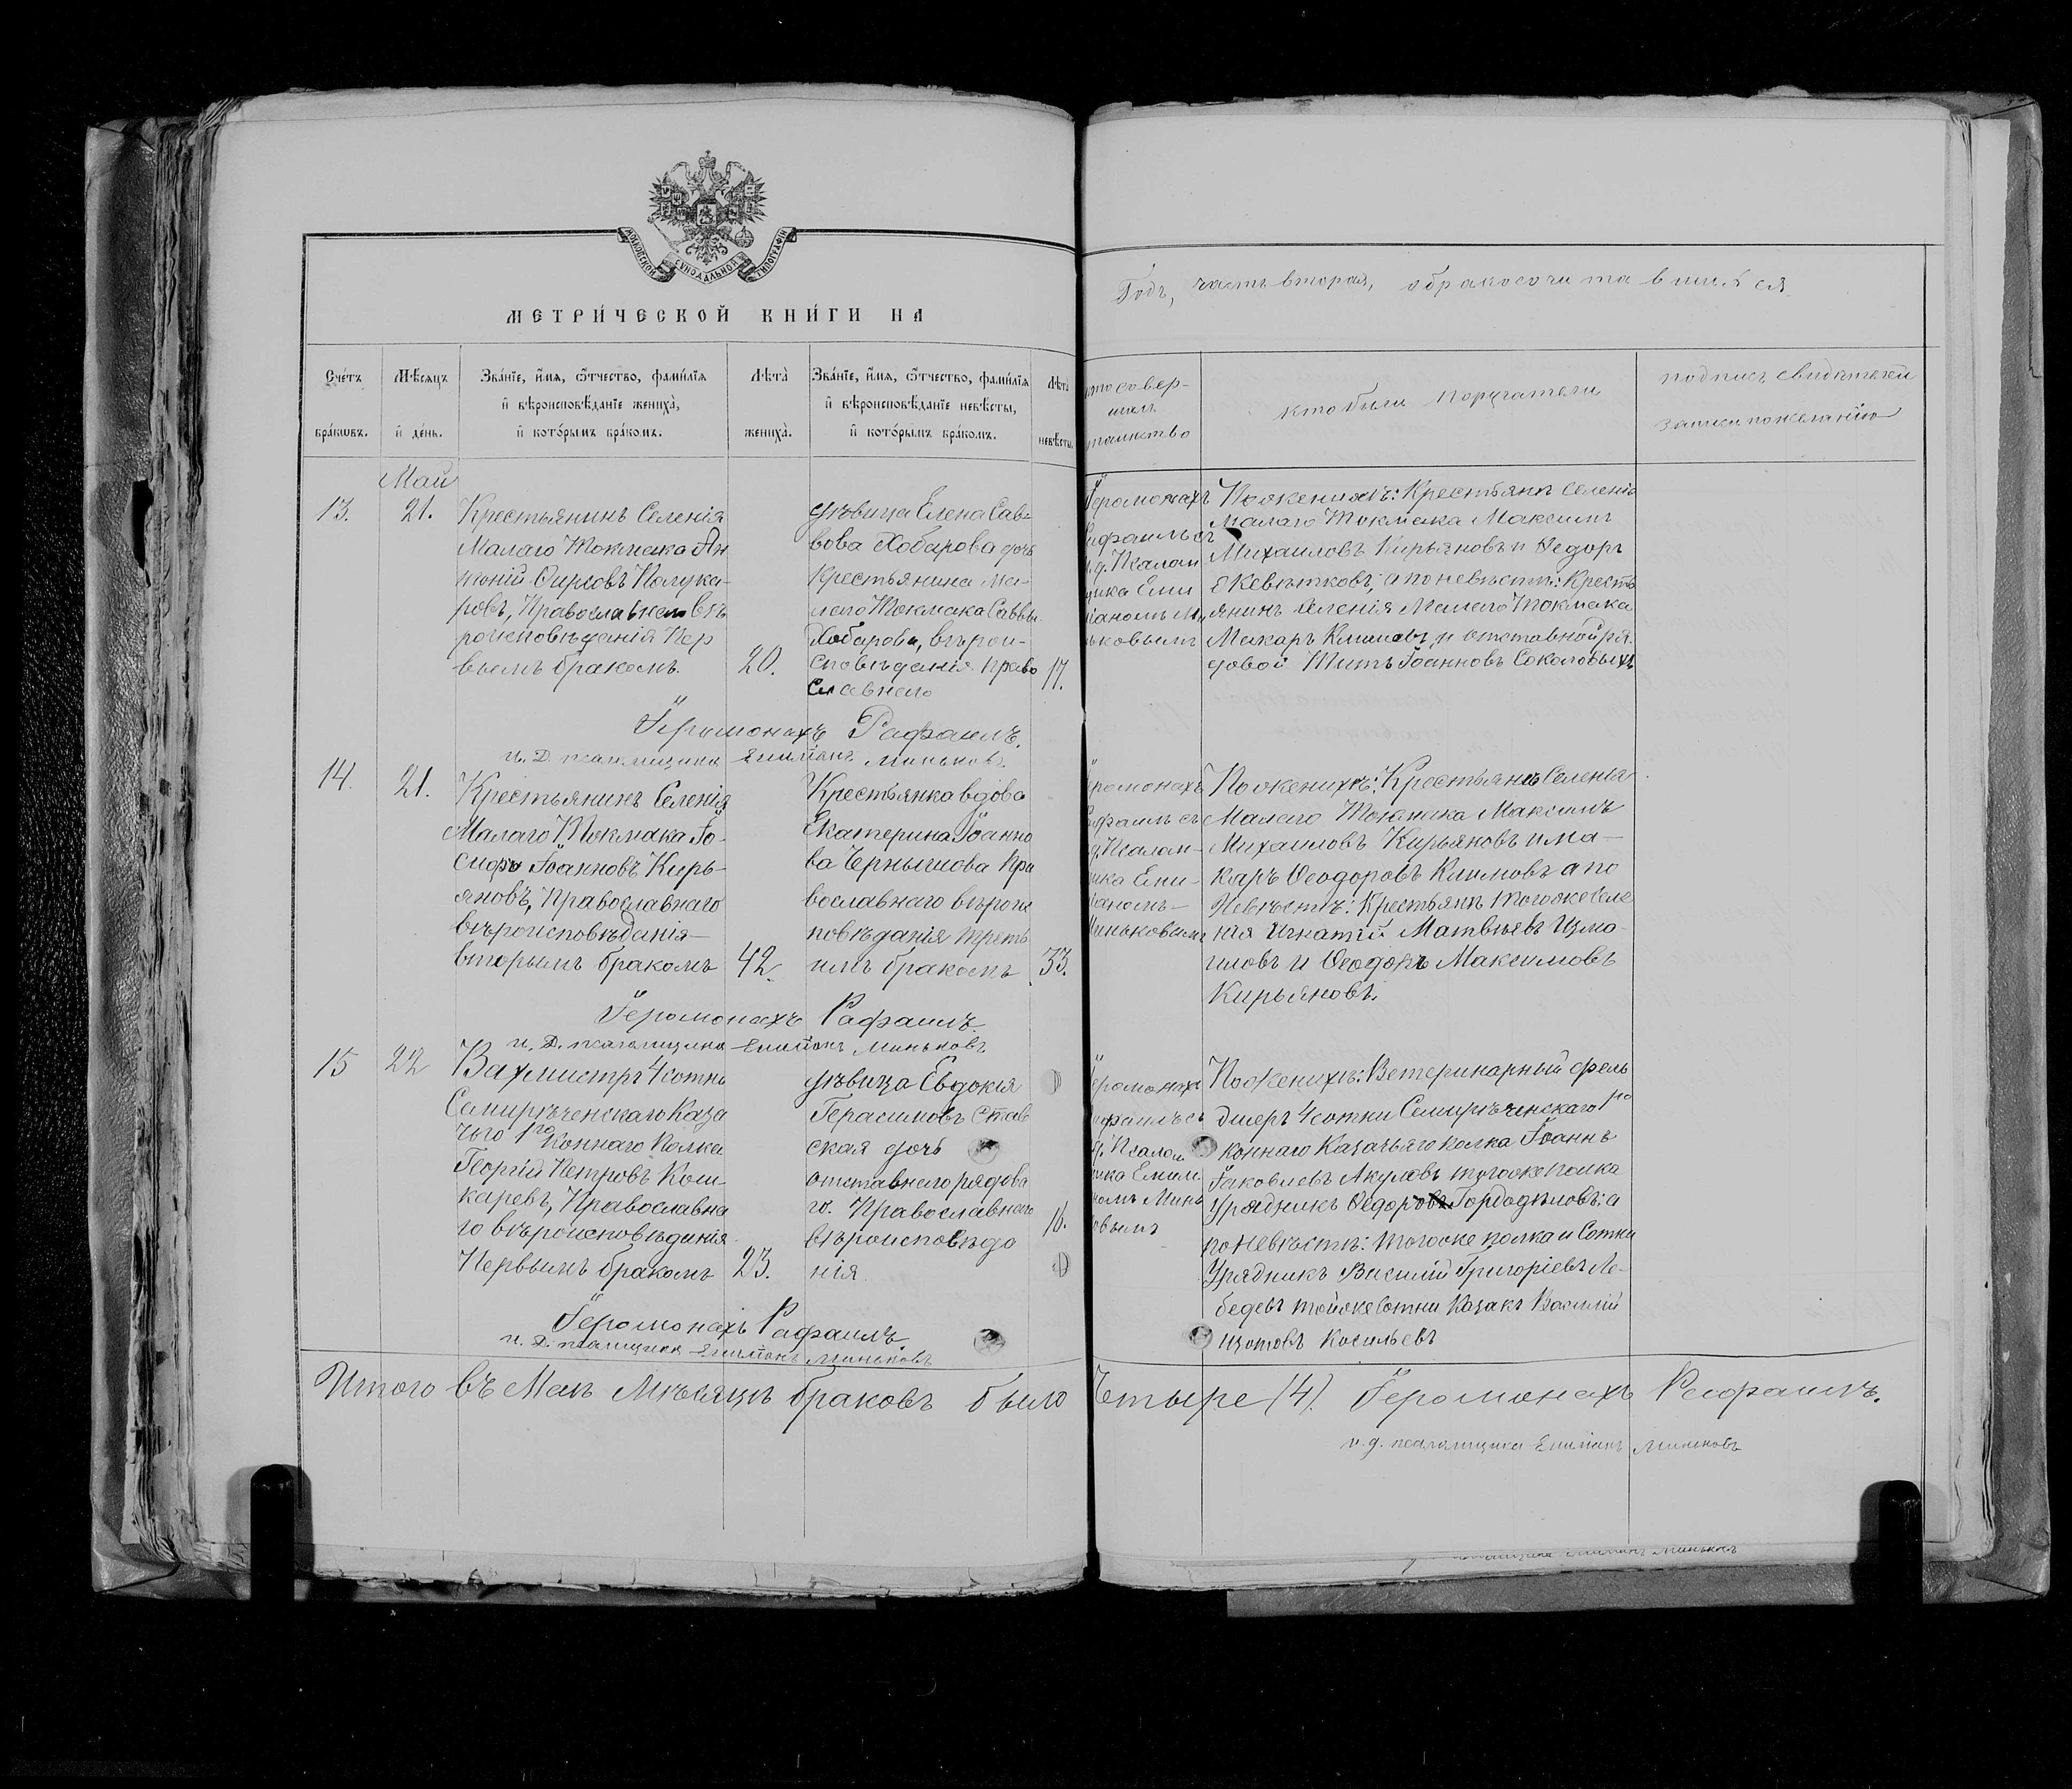 МОСКОВСКОЙ СѴНОДАЛЬНОЙ ТИПОГРАФІИ
МЕТРИ́ЧЕСКОЙ КНИ́ГИ НА
Годъ, часть вторая, обракосочитавшихся
Сче́тъ бра́кѡвъ.
Мѣ́сяцъ и҆ де́нь.
Зва́нїе, и҆́мя, ѻ҆́тчество, фами́лїя
и҆ вѣроисповѣ́данїе жениха̀,
и҆ кото́рымъ бра́комъ.
Лѣта̀ жениха̀.
Зва́нїе, и҆́мя, ѻ҆́тчество, фами́лїя
и҆ вѣроисповѣ́данїе невѣ́сты,
и҆ кото́рымъ бра́комъ.
Лѣта̀ невѣ́сты.
кто совер-
шилъ
таинство
кто были поручатели
подпись свидѣтелей
записи пожеланію
Май
13.
21.
Крестьянинъ Селенія
Малаго Токмака Ан
тоній
ровъ, Православнаго вѣ
роисповѣданія Пер
вымъ бракомъ.
20.
дѣвица Елена Сав-
вова Хобарова дочь
крестьянина Ма-
лаго Токмака Саввы
Хобарова, вѣрои-
сповѣданія право
славнаго
17.
Іеромонахъ
Рафаилъ съ
и.д. Псалом
щика Еми
ліаномъ Ми
ньковымъ
Поженихѣ: Крестьянъ Селенія
Малаго Токмака Максимъ
Михаиловъ Кирьяновъ и Ѳедоръ
а по невѣстѣ: Кресть
янинъ Селенія Малаго Токмака
Макаръ Климовъ, и отставной ря
довой Титъ Іоанновъ Соколовыхъ
Іеромонахъ Рафаилъ.
и. Д. псаломщика Емиліанъ Миньковъ.
14.
21.
Крестьянинъ Селенія
Малаго Токмака Іо-
сифъ Іоанновъ Кирь-
яновъ, Православнаго
вѣроисповѣданія
вторымъ бракомъ
42.
Крестьянка вдова
Екатерина Іоанно
ва Чернышова Пра
вославнаго вѣроис
повѣданія треть
имъ бракомъ
33.
Іеромонахъ
Рафаилъ съ
и.д. Псалом-
щика Еми-
ліаномъ
Миньковымъ
Пожениху: Крестьянъ Селенія
Малаго Токмака Максимъ
Михаиловъ Кирьяновъ и Ма-
каръ Ѳеодоровъ Климовъ а по
Невѣстѣ: Крестьянъ тогоже Селе
нія Игнатій Матвѣевъ Изма-
иловъ и Ѳеодоръ Максимовъ
Кирьяновъ.
Іеромонахъ Рафаилъ.
и. Д. псаломщика Емиліанъ Миньковъ
15
22
Вахмистръ 4 сотни
Семирѣченскаго Каза
чьго 1го Коннаго Полка
Георгій Петровъ Кош-
каревъ, Православна
го вѣроисповѣданія
Первымъ бракомъ
23.
дѣвица Евдокія
Герасимовъ Став
ская дочь
отставнаго рядова
го. Православнаго
вѣроисповѣда
нія.
16.
Іеромонахъ
Рафаилъ съ
и.д. Псалом
щика Емили
номъ Минь
ковымъ
Пожениху: Ветеринарный фель
дшеръ 4 сотни Семирѣченскаго 1го
коннаго Казачьяго полка Іоаннъ
Іаковлевъ Акуловъ тогоже полка
Урядникъ Ѳедоровъ Гордодѣловъ: а
по Невѣстѣ: тогоже полка и Сотни
Урядникъ Василій Григоріевъ Ле-
бедевъ тойже Сотни Казакъ Василій
Изотовъ
Іеромонахъ Рафаилъ
и. Д. псаломщика Емиліанъ Миньковъ
Итого въ Маѣ Мѣсяцѣ браковъ было Четыре (4). Іеромонахъ Рафаилъ.
и. д. псаломщика Емиліанъ Миньковъ